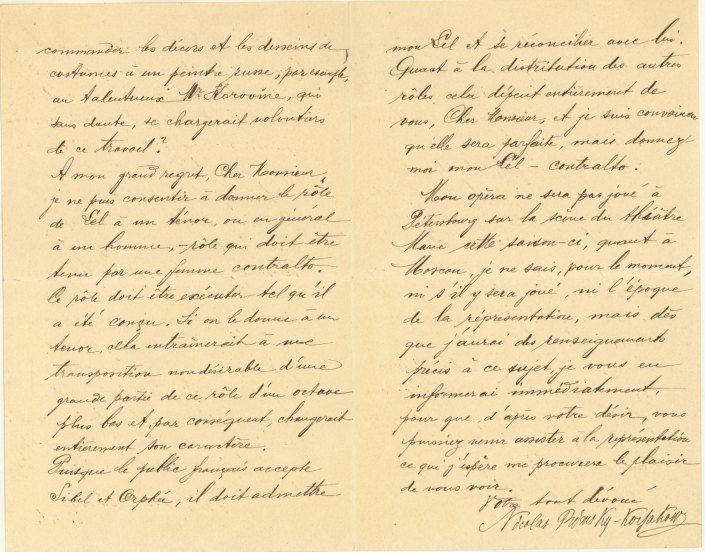 commander les décors et les desseins de
costumes à un peintre russe, par exemple,
au talentueux Mr Korovine, qui
sans doute, se chargerait volontiers
de ce travail?
A mon grand regret, Cher Monsieur,
je ne puis consentir à donner le rôle
de Lèl à un ténor, ou en général
à un homme, – rôle qui doit être
tenu par une femme contralto.
Ce rôle doit être exécuter tel qu'il
a été conçu. Si on le donne à un
tenor, cela entraînerait à une
transposition nondésirable d'une
grande partie de ce rôle d'un octave
plus bas et, par conséquent, changerait
entièrement son caractère.
Puisque le public français accepte
Sibel et Orphée, il doit admettre
mon Lèl et se réconcilier avec lui.
Quant à la distribution des autres
rôles cela dépent entièrement de
vous, Cher Monsieur, et je suis convaincu
qu'elle sera parfaite, mais donnez
moi mon Lèl – contralto.
Mon opèra ne sera pas joué à
Pétersbourg sur la scène du théâtre
Marie cette saison-ci, quant à
Moscou, je ne sais, pour le moment,
ni s'il y sera joué, ni l'époque
de la réprésentation, mais dès
que j'aurai des renseignements
précis à ce sujet, je vous en
informerai immédiatement,
pour que, d'après votre désir, vous
puissiez venir assister à la réprésentation
ce qui j'espère me procurera le plaisir
de vous voir.
Votre tout dévoué
Nicolas Rimsky-Korsakow